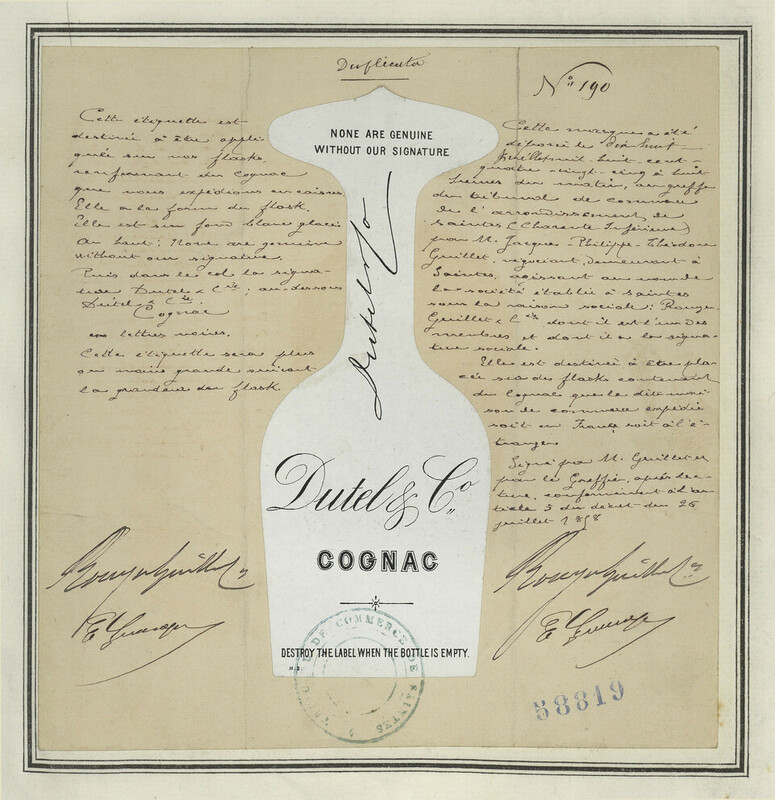 Duplicata
No 190
Cette étiquette est
destinée à être appli
quée sur nos flasks,
renfermant du Cognac
que nous expédions en caisses
Elle a la forme du flask.
Elle est sur fond blanc glacé
au haut: None are genuine
without our signature.
Puis dans le col la signa-
ture Dutel & Cie; au-dessous
Dutel & Cie.
Cognac
en lettres noires.
Cette étiquette sera plus
ou moins grande suivant
la grandeur du flask.
NONE ARE GENUINE
WITHOUT OUR SIGNATURE
Dutel & Co
Dutel & Co
COGNAC
DESTROY THE LABEL WHEN THE BOTTLE IS EMPTY.
TRIBUNAL DE COMMERCE DE SAINTES
Cette marque a été
déposée le dix huit
Juillet mil-huit-cent-
quatre-vingt-cinq à huit
heures du matin, au greffe
du tribunal de commerce
de l'arrondissement de
Saintes (Charente Inférieure)
par M. Jacques-Philippe-Théodore
Guillet, négociant, demeurant à
Saintes, agissant au nom de
la société établie à Saintes
sous la raison sociale: Rouyer
Guillet & Cie dont il est l'un des
membres et dont il a la signa-
ture sociale.
Elle est destinée à être pla-
cée sur des flasks contenant
du Cognac que la dite mai-
son de commerce expédie
soit en France soit à l'é-
tranger
Signé par M. Guillet et
par le Greffier, après lec-
ture, conformément à l'ar-
ticle 3 du décret du 26
juillet 1858
Rouyer Guillet & Cie
Rouyer Guillet & Cie
58819